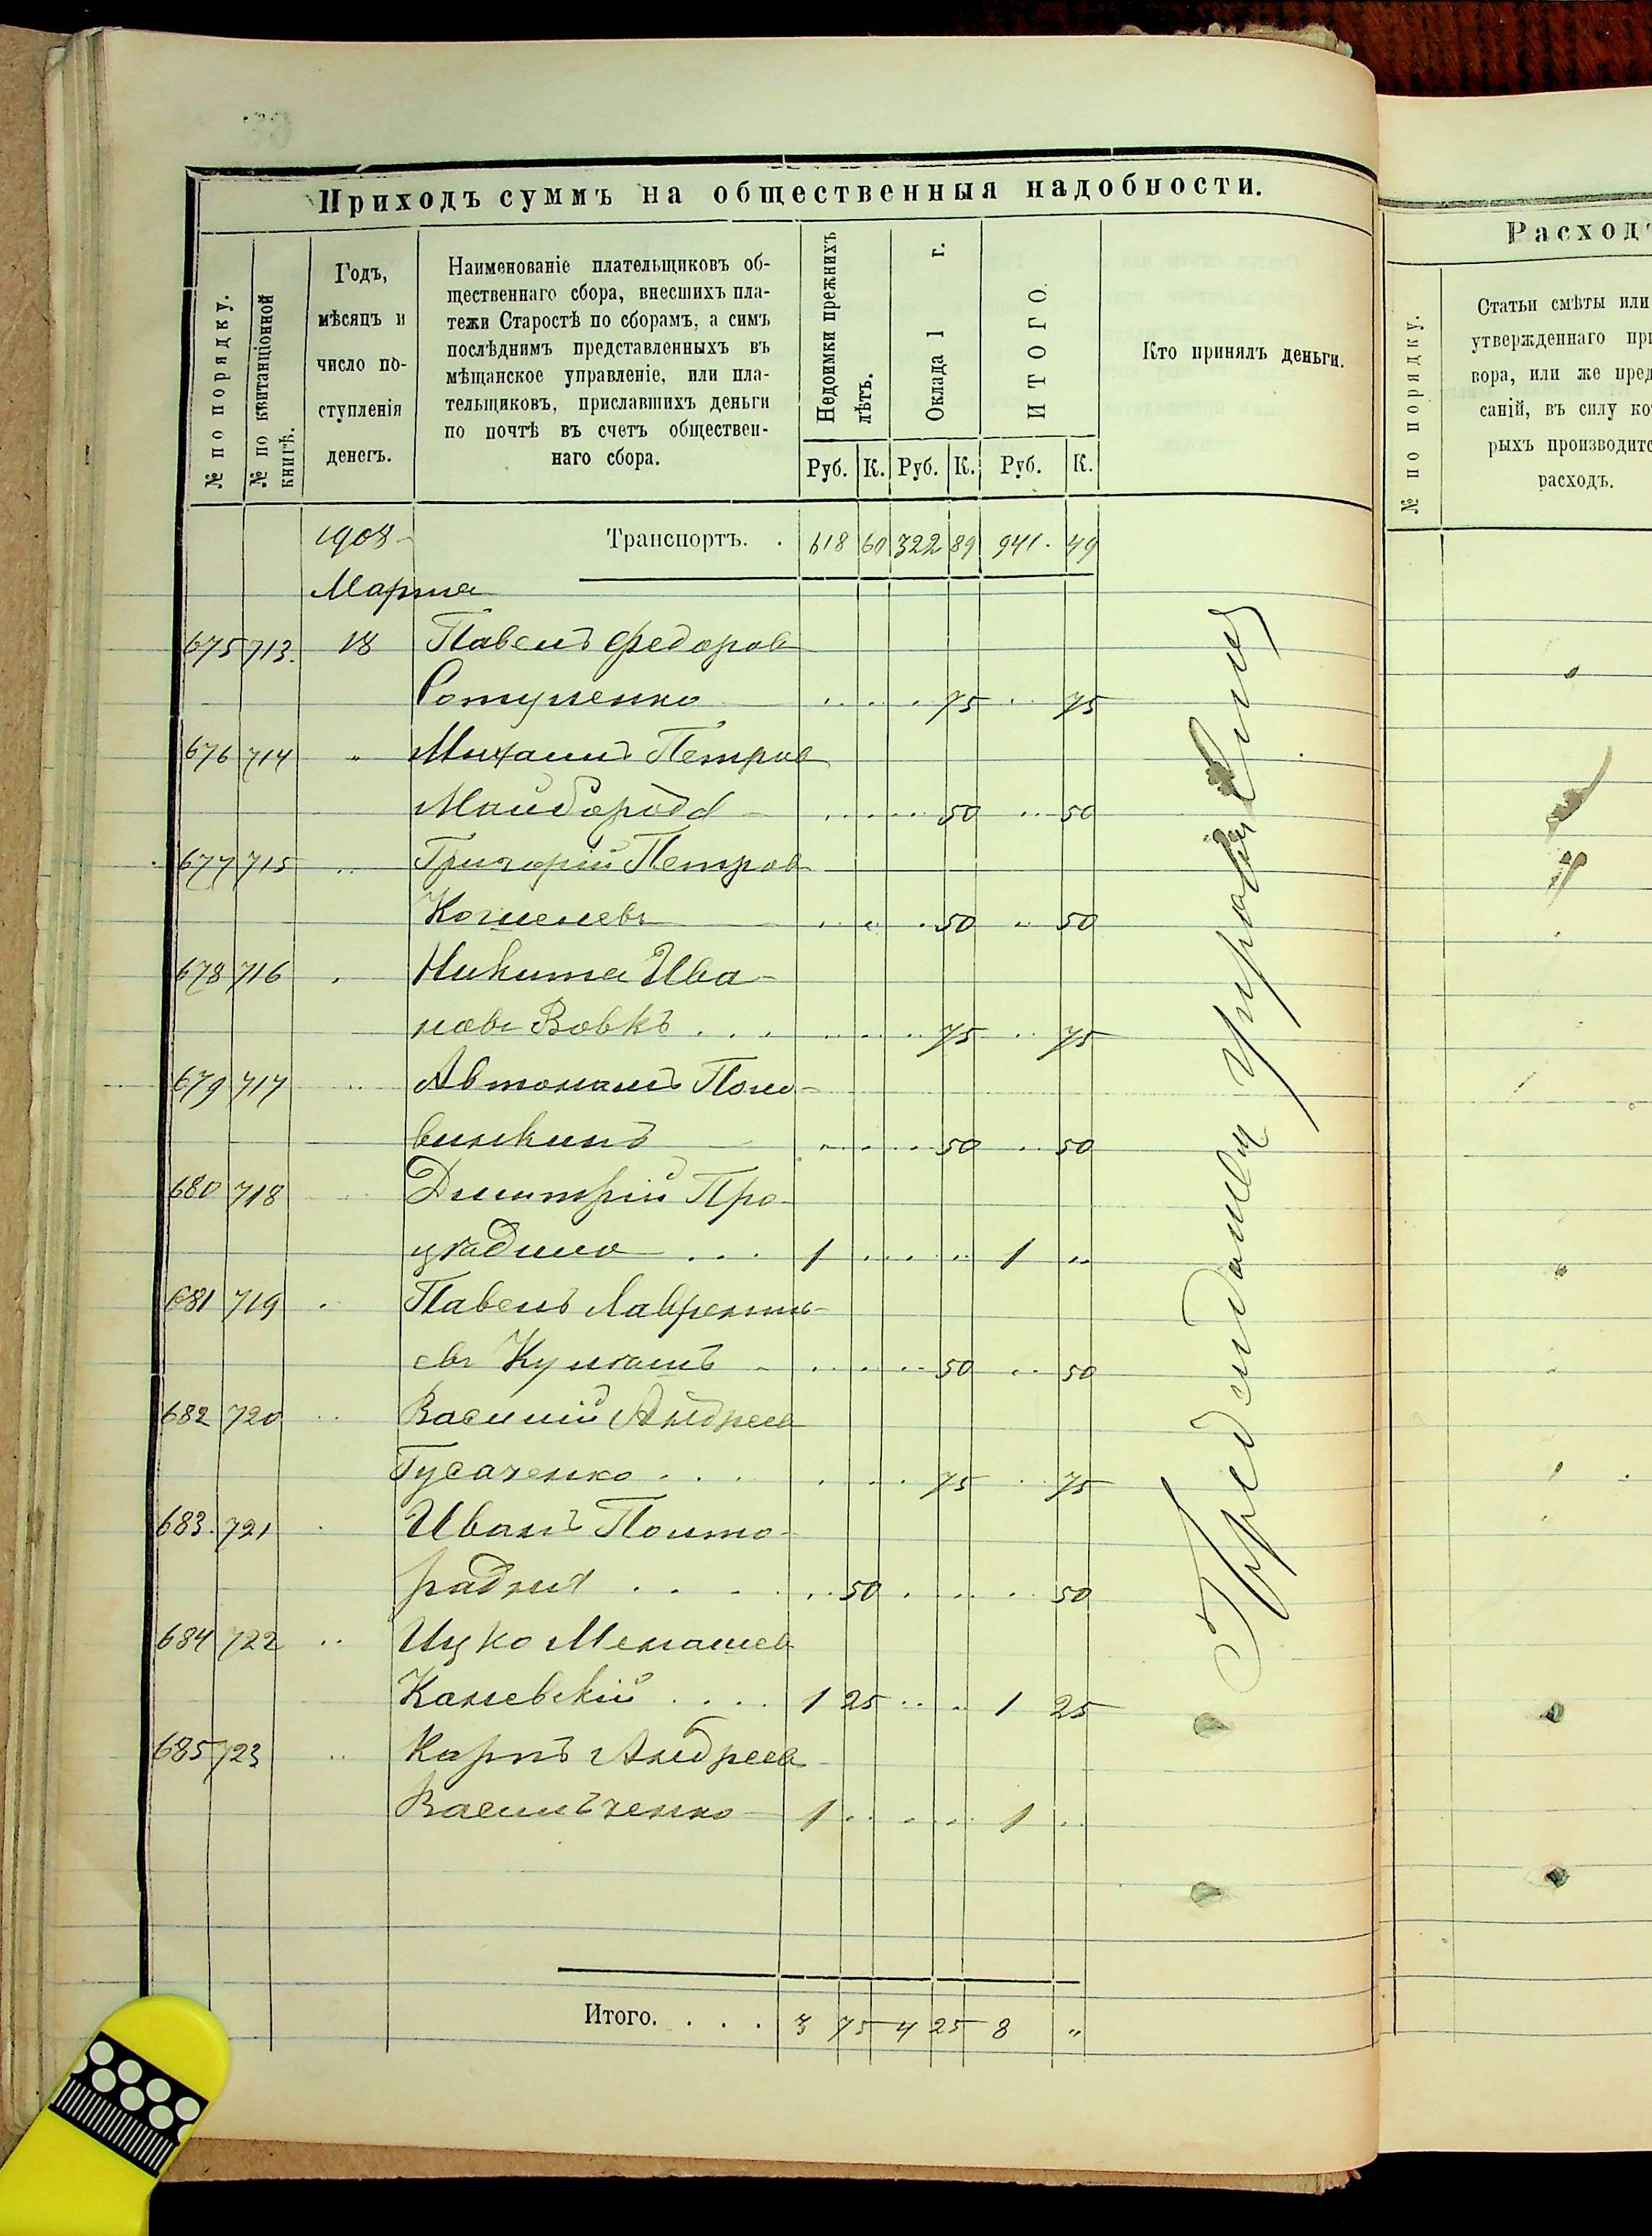 Приходъ суммъ на общественныя надобности.
№ по порядку.
№ по квитанціонной книгѣ.
Годъ,
мѣсяцъ и
число по-
ступленія
денегъ.
Наименованіе плательщиковъ об-
щественнаго сбора, внесшихъ пла-
тежи Старостѣ по сборамъ, а симъ
послѣднимъ представленныхъ въ
мѣщанское управленіе, или пла-
тельщиковъ, приславшихъ деньги
по почтѣ въ счетъ обществен-
наго сбора.
Недоимки прежнихъ
лѣтъ.
Оклада 1 г.
ИТОГО.
Кто принялъ деньги.
Руб. К. Руб. К. Руб. К.
1908 Транспортъ. . 618 60 322 89 941 49
Марта
675 713. 18 Павелъ Федоров
75 75
676 714 " Михаилъ Петров
Майборода 50 50
677 715 " Григорій Петров
Кошелевъ 50 50
678 716 " Никита Ива-
новъ Вовкъ . . . 75 75
679 717 " Автономъ Поло-
винкинъ 50 50
680 718 " Дмитрій Про-
. . . 1 1 "
681 719 " Павелъ Лавренть-
евъ 50 50
682 720 " Василій Андреев
Гусаченко . . . 75 75
683. 721 " Иванъ Полто-
радня . . . 50 50
684 722 " Ицко Менашев
Каневскій . . . . 1 25 1 25
685 723 " Карпъ Андреев
Васильченко 1 1
Итого. . . . 3 75 4 25 8 "
Расход
№ по порядку.
Статьи смѣты или
утвержденнаго при
вора, или же пред
саній, въ силу ко
рыхъ производитс
расходъ.